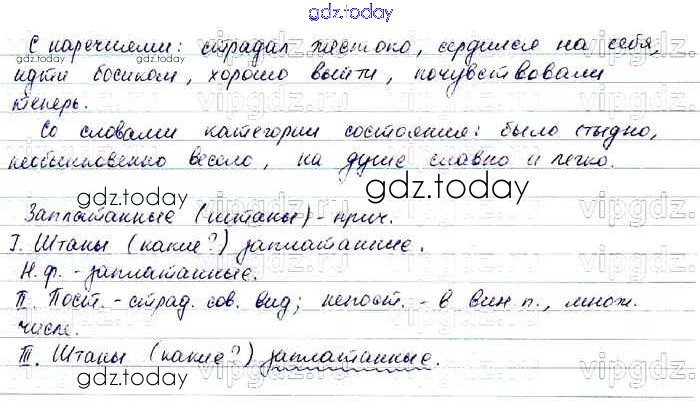 gdz.today
С наречиями: страдал жестоко, сердился на себя,
идти босиком, хорошо выйти, почувствовали
теперь.
Со словами категории состояния: было стыдно,
необыкновенно весело, на душе славно и легко.
gdz.today
Заплатанные (штаны) - прич.
I. Штаны (какие?) заплатанные.
Н.ф. - заплатанные.
II. Пост. - страд. сов. вид; непост. - в вин п., множ.
числе.
III. Штаны (какие?) заплатанные.
gdz.today